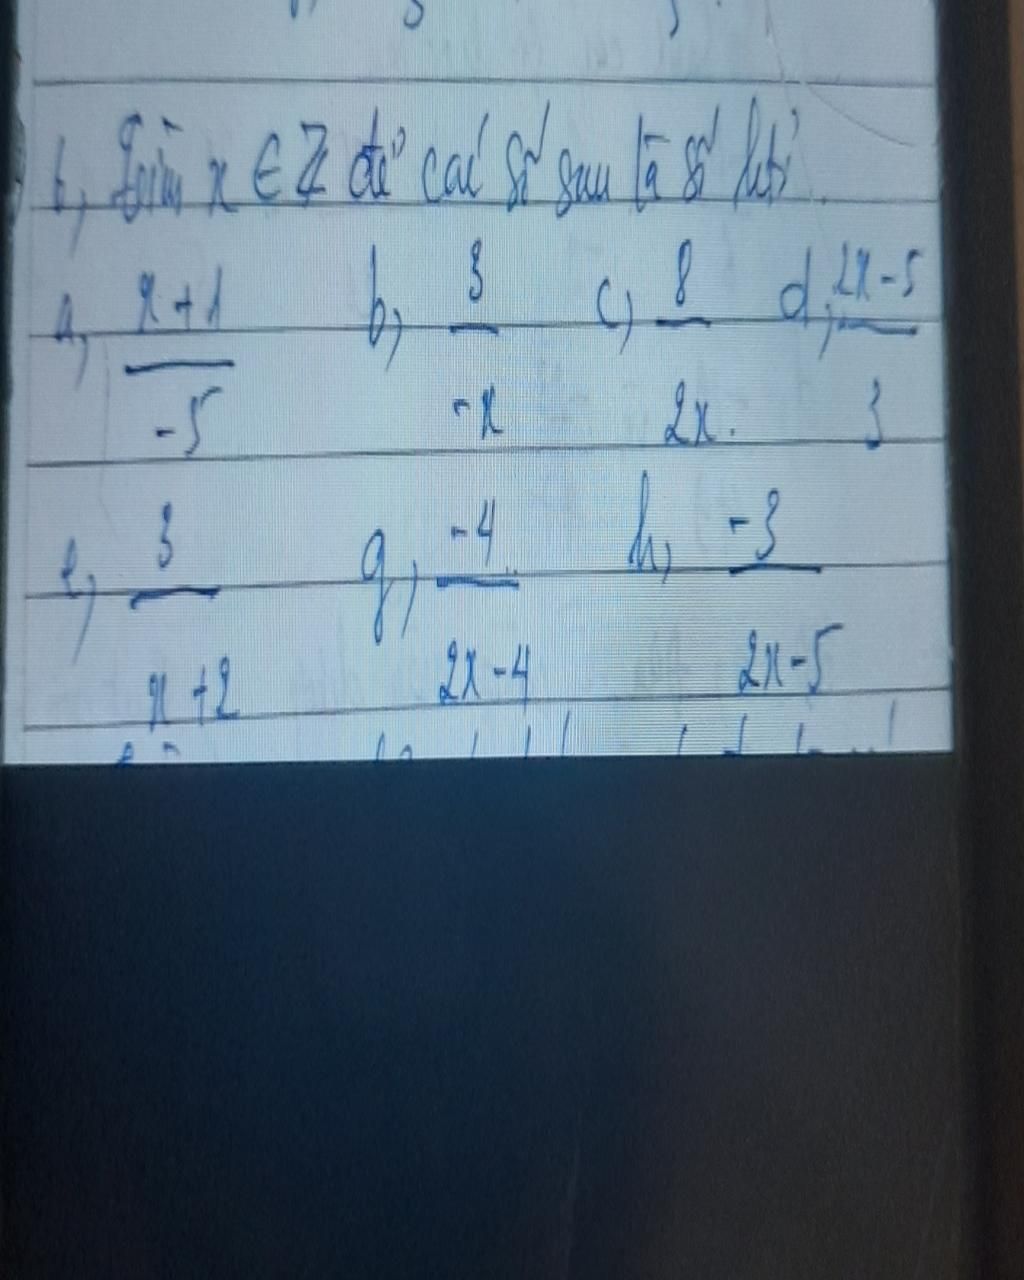 b, Tìm x ∈ Z để các số sau là số hữu tỉ
a, x+1/-5 b, 3/-x c, 8/2x. d, 2x-5/3
e, 3/x+2 g, -4/2x-4 h, -3/2x-5